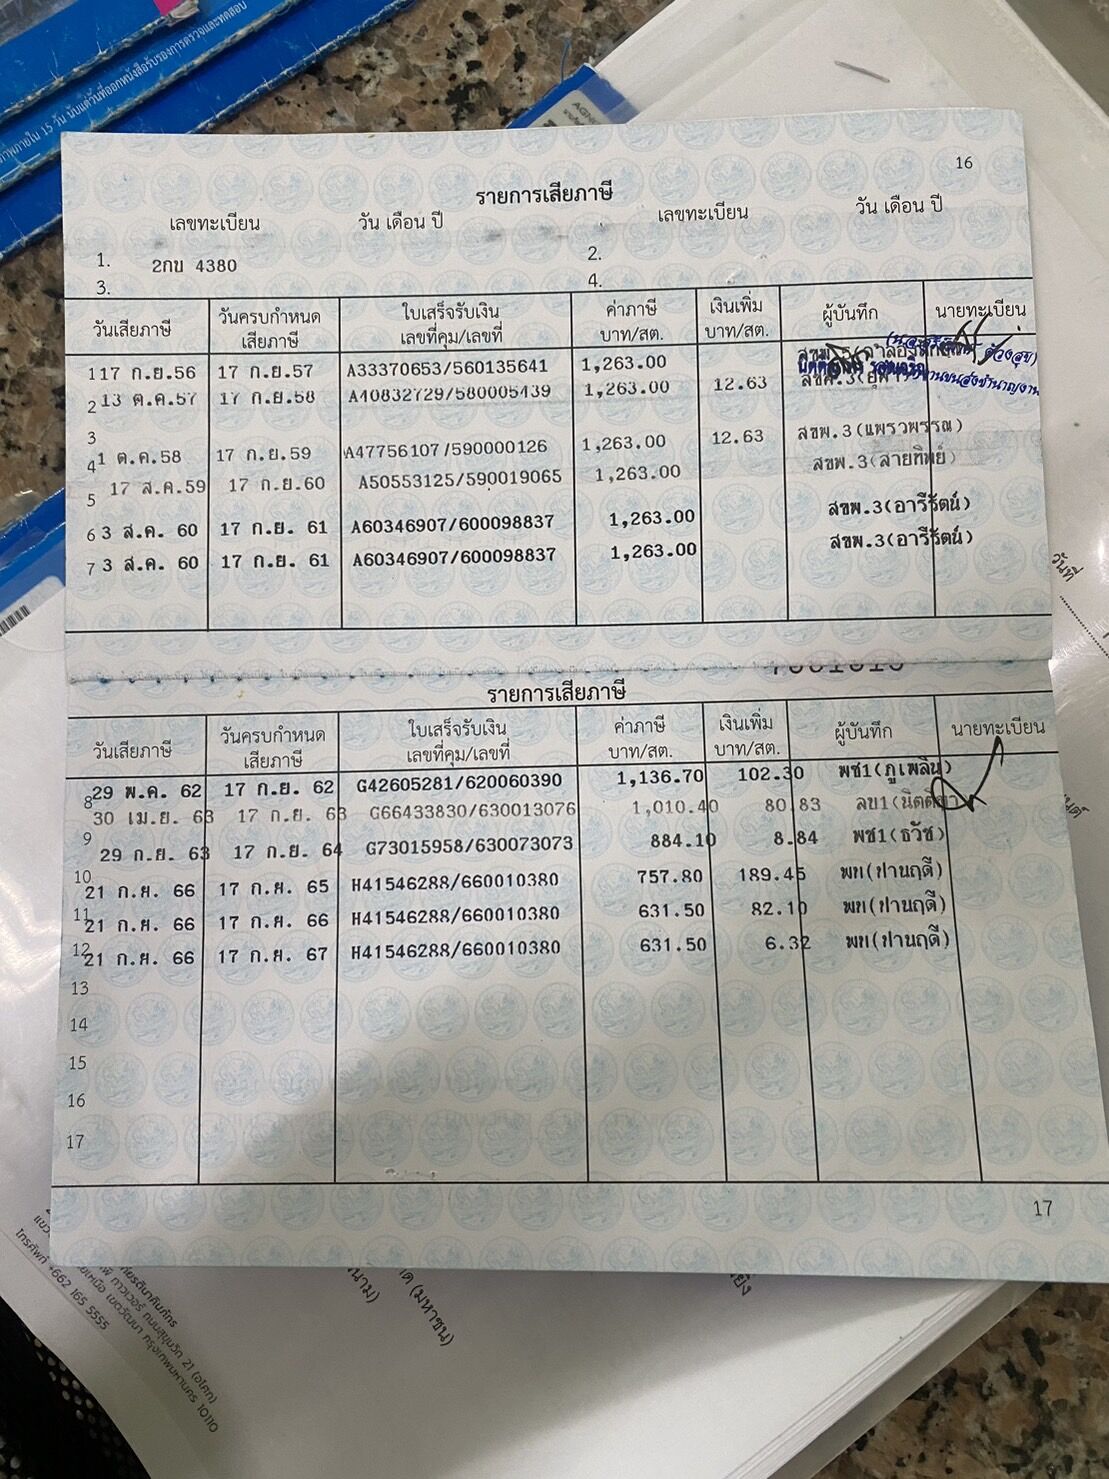 ภาพภายใน 15 วัน นับแต่วันที่ออกหนังสือรับรองการตรวจและทดสอบ
16
รายการเสียภาษี
เลขทะเบียน วัน เดือน ปี เลขทะเบียน วัน เดือน ปี
1. 2กบ 4380 2.
3. 4.
วันเสียภาษี วันครบกำหนดเสียภาษี ใบเสร็จรับเงิน เลขที่คุม/เลขที่ ค่าภาษี บาท/สต. เงินเพิ่ม บาท/สต. ผู้บันทึก นายทะเบียน
1 17 ก.ย.56 17 ก.ย.57 A33370653/560135641 1,263.00
2 13 ต.ค.57 17 ก.ย.58 A40832729/580005439 1,263.00 12.63
3
4 1 ต.ค.58 17 ก.ย.59 A47756107/590000126 1,263.00 12.63 สขพ.3(แพรวพรรณ)
5 17 ส.ค.59 17 ก.ย.60 A50553125/590019065 1,263.00 สขพ.3(สายทิพย์)
6 3 ส.ค. 60 17 ก.ย. 61 A60346907/600098837 1,263.00 สขพ.3(อารีรัตน์)
7 3 ส.ค. 60 17 ก.ย. 61 A60346907/600098837 1,263.00 สขพ.3(อารีรัตน์)
รายการเสียภาษี
วันเสียภาษี วันครบกำหนดเสียภาษี ใบเสร็จรับเงิน เลขที่คุม/เลขที่ ค่าภาษี บาท/สต. เงินเพิ่ม บาท/สต. ผู้บันทึก นายทะเบียน
29 พ.ค. 62 17 ก.ย. 62 G42605281/620060390 1,136.70 102.30 พช1(ภูเพลิน)
8 30 เม.ย. 63 17 ก.ย. 63 G66433830/630013076 1,010.40 80.83
9 29 ก.ย. 63 17 ก.ย. 64 G73015958/630073073 884.10 8.84 พช1(ธวัช)
10 21 ก.ย. 66 17 ก.ย. 65 H41546288/660010380 757.80 189.45
11 21 ก.ย. 66 17 ก.ย. 66 H41546288/660010380 631.50 82.10
12 21 ก.ย. 66 17 ก.ย. 67 H41546288/660010380 631.50 6.32
13
14
15
16
17
17
วันที่
(มหาชน)
21 (อโศก)
กรุงเทพมหานคร 10110
โทรศัพท์ +662 165 5555